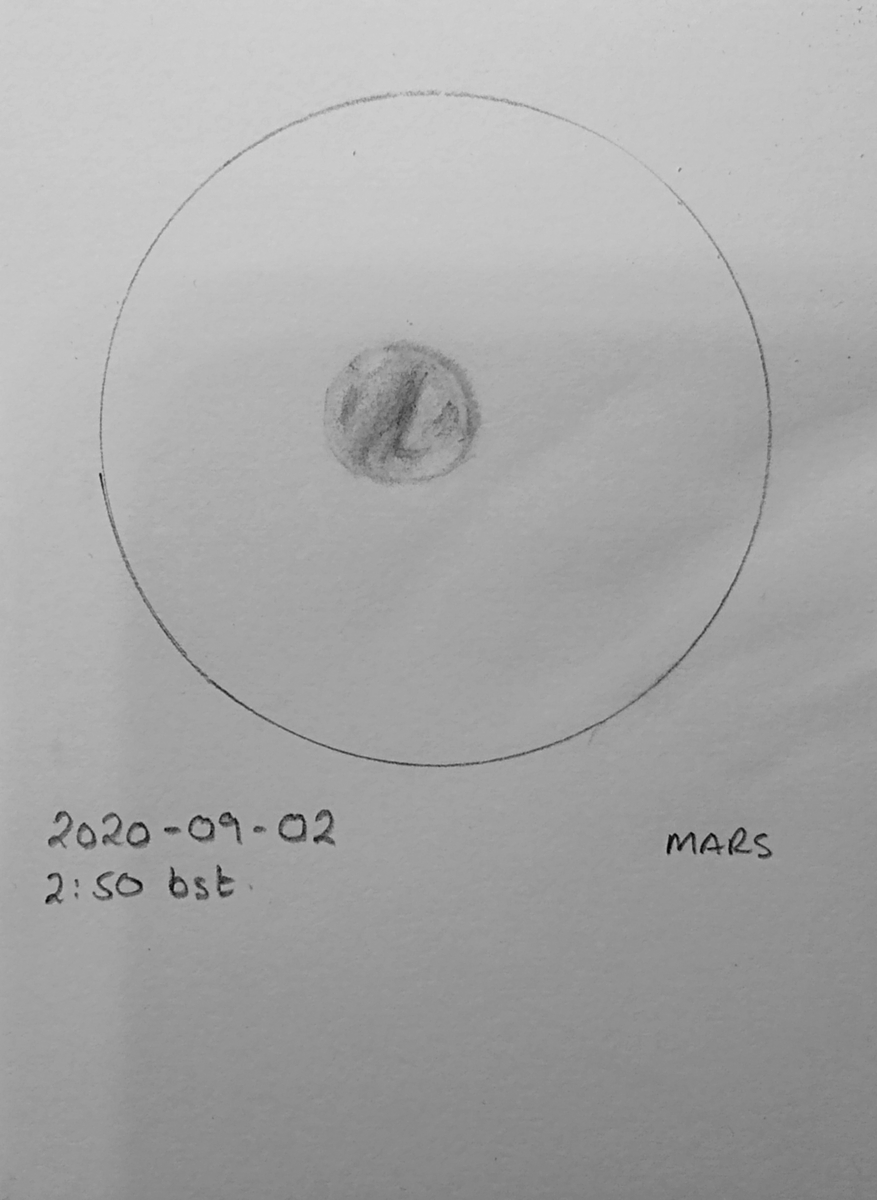 2020-09-02
2:50 bst.
MARS